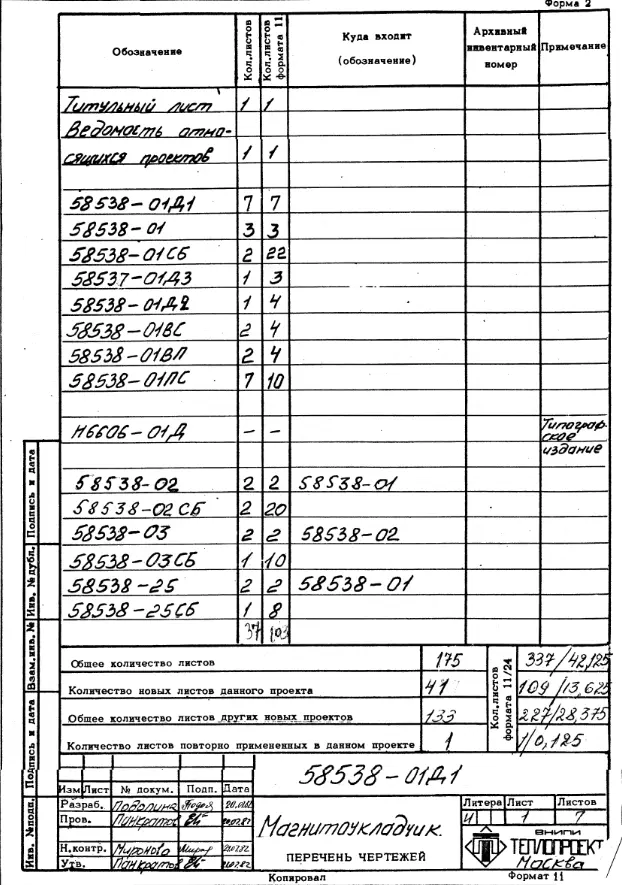 Форма 2
Обозначение Кол.листов Кол.листов формата 11 Куда входит (обозначение) Архивный инвентарный номер Примечание
Титульный лист 1 1
Ведомость отно-
сящихся проектов 1 1
58538-01Д1 7 7
58538-01 3 3
58538-01СБ 2 22
58537-01Д3 1 3
58538-01Д2 1 4
58538-01ВС 2 4
58538-01ВП 2 4
58538-01ПС 7 10
Н6606-01Д - - Типограф-
ское
издание
58538-02 2 2 58538-01
58538-02СБ 2 20
58538-03 2 2 58538-02
58538-03СБ 1 10
58538-25 2 2 58538-01
58538-25СБ 1 8
37 103
Общее количество листов 175 Кол.листов формата 11/24 337/42,125
Количество новых листов данного проекта 41 109/13,625
Общее количество листов других новых проектов 133 227/28,375
Количество листов повторно примененных в данном проекте 1 1/0,125
Подпись и дата
Инв. № дубл.
Взам.инв. №
Подпись и дата
Инв. №подл.
58538-01Д1
Изм Лист № докум. Подп. Дата
Разраб.
Пров. Панкратов
Н.контр. Миронова
Утв. Панкратов
Магнитоукладчик.
ПЕРЕЧЕНЬ ЧЕРТЕЖЕЙ
Литера Лист Листов
И 1 7
ВНИПИ
ТЕПЛОПРОЕКТ
Москва
Копировал Формат 11